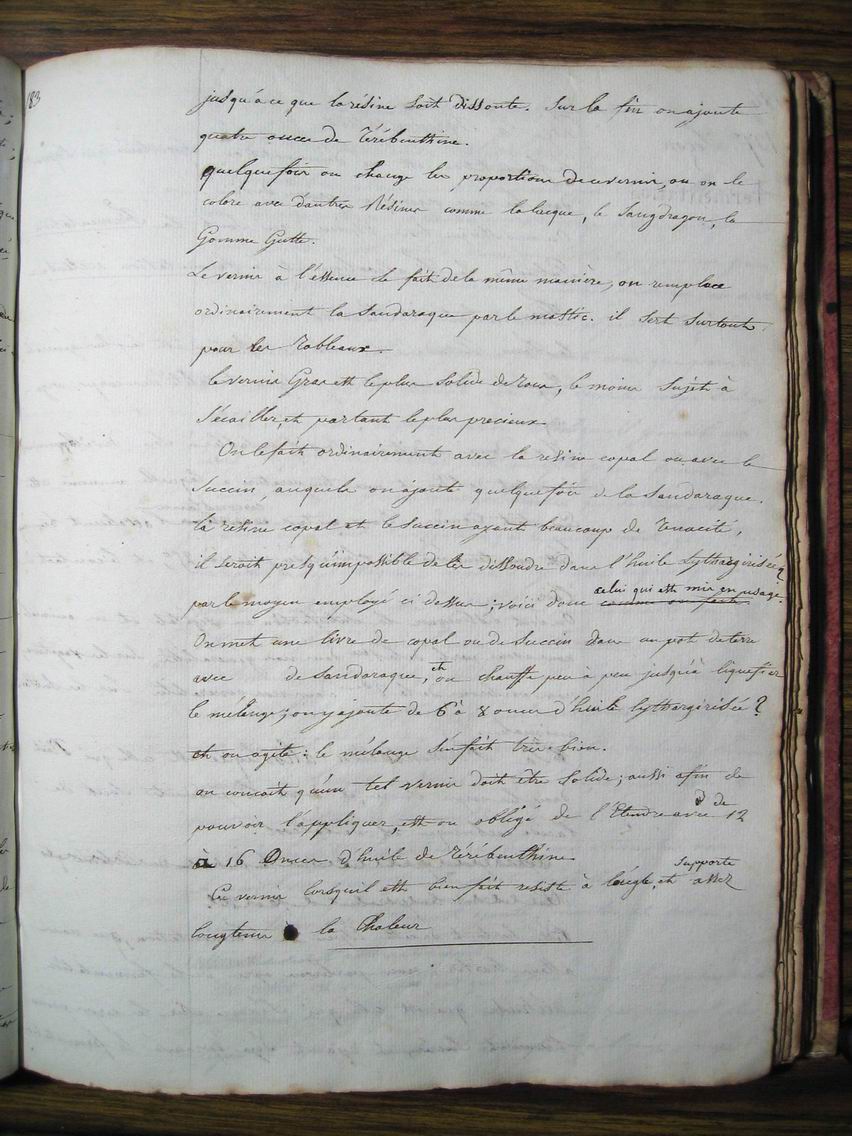 183
jusqu'à ce que la résine soit dissoute. Sur la fin on ajoute
quatre onces de Térébenthine.
quelquefois on change les proportions de ce vernis, ou on le
colore avec d'autres Résines comme la lacque, le Sangdragon, la
Gomme Gutte.
Le vernis à l'essence se fait de la même manière, on remplace
ordinairement la Sandaraque par le mastic. il sert surtout
pour les Tableaux.
le vernis Gras est le plus solide de tous, le moins Sujet à
S'écailler, et partant le plus precieux.
On le fait ordinairement avec la résine copal ou avec le
Succin, auquels on ajoute quelquefois de la Sandaraque.
la résine copal et le Succin ayant beaucoup de Tenacité,
il seroit presqu'impossible de les dissoudre dans l'huile Lythargirisée
celui qui est mis en usage.
par le moyen employé ci dessus; voici donc comme on fait
On met une livre de copal ou de Succin dans un pot de terre
avec de Sandaraque, et on chauffe peu à peu jusqu'à liquefier
le mélange; on y ajoute de 6 à 8 onces d'huile lythargirisée ?
et on agite: le mélange S'en fait très-bien.
on conçoit qu'un tel vernis doit être solide; aussi afin de
pouvoir l'appliquer, est on obligé de l'Etendre avec de 12
à 16 Onces d'huile de Térébenthine
Supporte
Ce vernis lorsqu'il est bien fait resiste à l'ongle, et assez
longtems la Chaleur